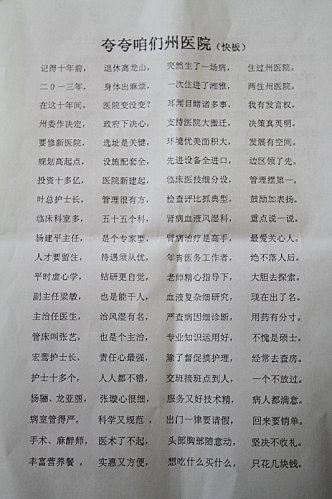 夸夸咱们州医院（快板）
记得十年前， 退休离龙山， 突然生了一场病， 住过州医院。
二○一三年， 身体出麻烦， 一次生进了湘雅， 两住州医院。
在这十年间， 医院变没变？ 耳闻目睹诸多事， 我有发言权。
州委作决定， 政府下决心， 支持医院大搬迁， 决策真英明。
要修新医院， 选址是关键， 环境优美面积大， 发展有空间。
规划高起点， 设施配套全， 先进设备全进口， 边区领了先。
投资十多亿， 医院新建起， 临床医技细分设， 管理摆第一。
叶总护士长， 管理很有方， 检查评比抓典型， 鼓励加表扬。
临床科室多， 五十五个科， 肾病血液风湿科， 重点说一说。
杨建平主任， 是个专家型， 肾病治疗是高手， 最爱关心人。
人才要留住， 待遇须从优， 年青医务工作者， 绝不落人后。
平时虚心学， 钻研更自觉， 老师精心指导下， 大胆去探索。
副主任梁敏， 也是能干人， 血液复杂细研究， 现在出了名。
主持任医生， 治风湿有名， 严查病因细诊断， 用药有分寸。
管床叫张艺， 也是个主治， 专业知识运用好， 不愧是硕士。
宏鸾护士长， 责任心最强， 除了督促摸护理， 经常去查房。
护士十多个， 人人都不错， 交班接班点到人， 一个不放过。
杨骊、龙亚丽， 张璇心很细， 服务又好技术精， 病人都满意。
病室管得严， 科学又规范， 出门一律要请假， 回来要销单。
手术、麻醉师， 医术了不起， 头部胸部随意动， 坚决不收礼。
丰富营养餐， 实惠又方便， 想吃什么买什么， 只花几块钱。